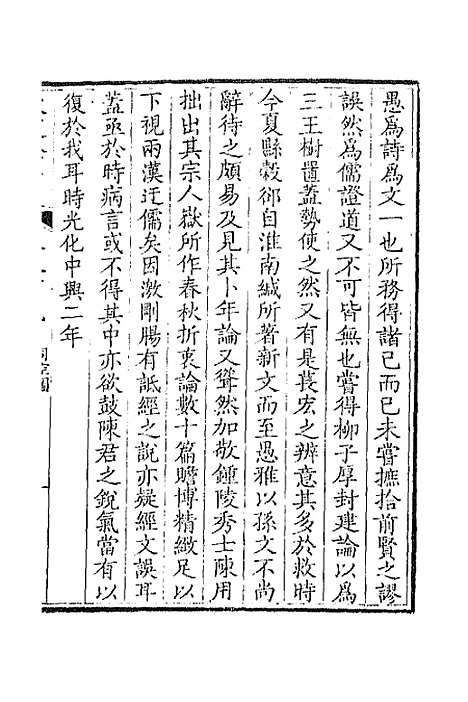 愚爲詩爲文一也所務得諸己而已未嘗摭拾前賢之謬
誤然爲儒證道又不可皆無也嘗得柳子厚封建論以爲
三王樹置蓋勢使之然又有是萇宏之辨意其多於救時
今夏縣榖郤自淮南緘所著新文而至愚雅以孫文不尚
辭待之頗易及見其卜年論又聳然加敬鍾陵秀士陳用
拙出其宗人嶽所作春秋折衷論數十篇贍博精緻足以
下視兩漢迂儒矣因激剛腸有詆經之說亦疑經文誤耳
蓋亟於時病言或不得其中亦欲鼓陳君之銳氣當有以
復於我耳時光化中興二年